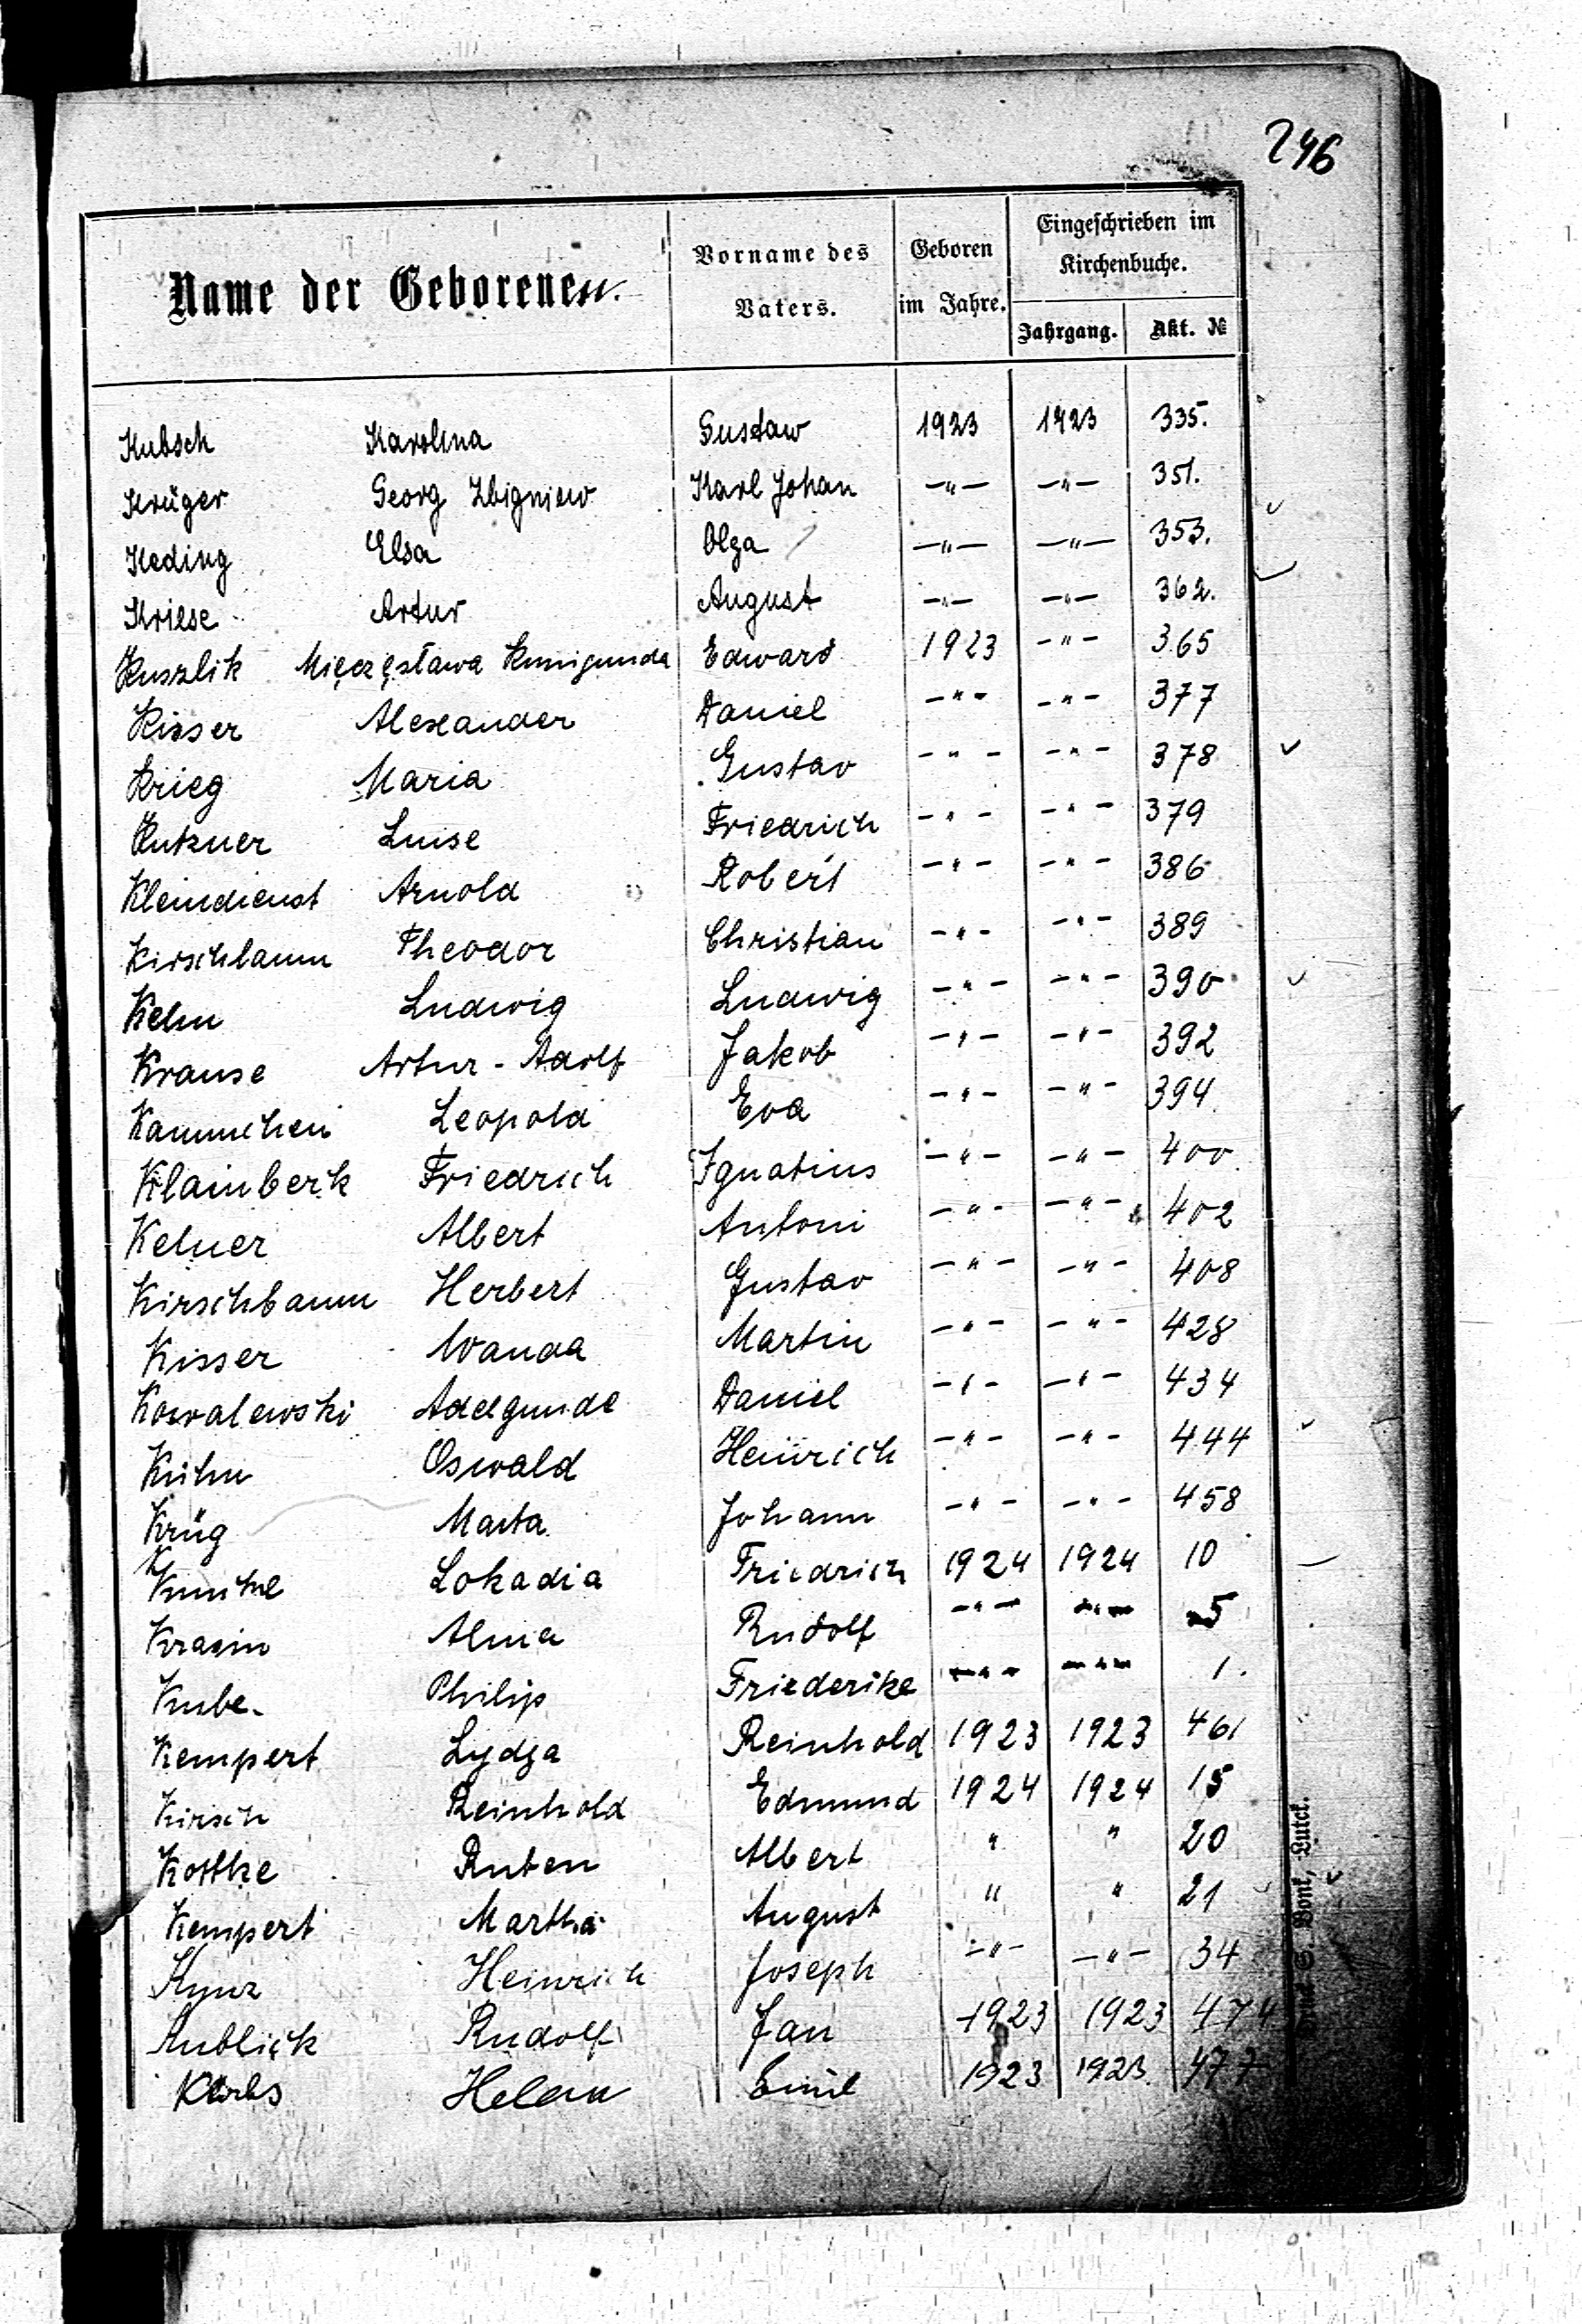 246
Name der Geborenen.
Vorname des Vaters.
Geboren im Jahre.
Eingeschrieben im Kirchenbuche.
Jahrgang. Akt. №
Kubsch Karolina Gustaw 1923 1923 335.
Krüger Georg Zbigniew Karl Johan —"— —"— 351.
Keding Elsa Olga —"— —"— 353.
Kriese Artur August —"— —"— 362.
Kuszlik Mięczęsława Kunigunda Edward 1923 -"- 365
Kisser Alexander Daniel -"- -"- 377
Krieg Maria Gustav -"- -"- 378
Kutzner Luise Friedrich -"- -"- 379
Kleindienst Arnold Robert -"- -"- 386
Kirschbaum Theodor Christian -"- -"- 389
Kelm Ludwig Ludwig -"- -"- 390
Krause Artur - Adolf Jakob -"- -"- 392
Kammchen Leopold Eva -"- -"- 394
Klainberk Friedrich Ignatius -"- -"- 400
Kelner Albert Antoni -"- -"- 402
Kirschbaum Herbert Gustav -"- -"- 408
Kisser Wanda Martin -"- -"- 428
Kowalewski Adelgunde Daniel -"- -"- 434
Kühn Oswald Heinrich -"- -"- 444
Krüg Marta Johann -"- -"- 458
Lokadia Friedrich 1924 1924 10
Alma Rudolf -"- -"- 5
Kube. Philip Friederike -"- -"- 1.
Kempert Lydja Reinhold 1923 1923 461
Kirsch Reinhold Edmund 1924 1924 15
Kottke Ruben Albert " " 20
Kempert Martha August " " 21
Kynz Heinrich Joseph -"- -"- 34
Kublick Rudolf Jan 1923 1923 474
Emil 1923 1923. 477
Bonk, Luck.